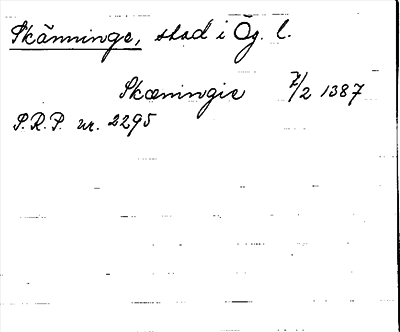 Skänninge, stad i Ög. l.
Skæningie 7/2 1387
S.R.P. nr. 2295